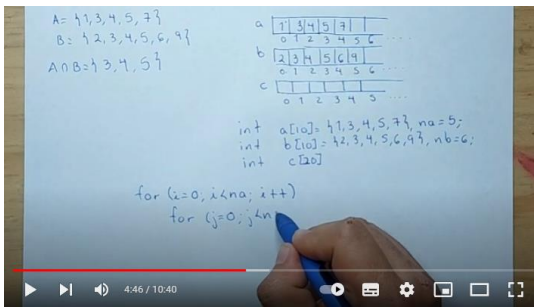 A = {1,3,4,5,7}
B = {2,3,4,5,6,9}
A∩B={3,4,5}
a 1 3 4 5 7
0 1 2 3 4 5 6 ....
b 2 3 4 5 6 9
0 1 2 3 4 5 6 ....
c
0 1 2 3 4 5 ....
int a[10]= {1,3,4,5,7}, na=5;
int b[10]= {2,3,4,5,6,9}, nb=6;
int c[20]
for (i=0; i<na; i++)
for (j=0; j<n
4:46 / 10:40